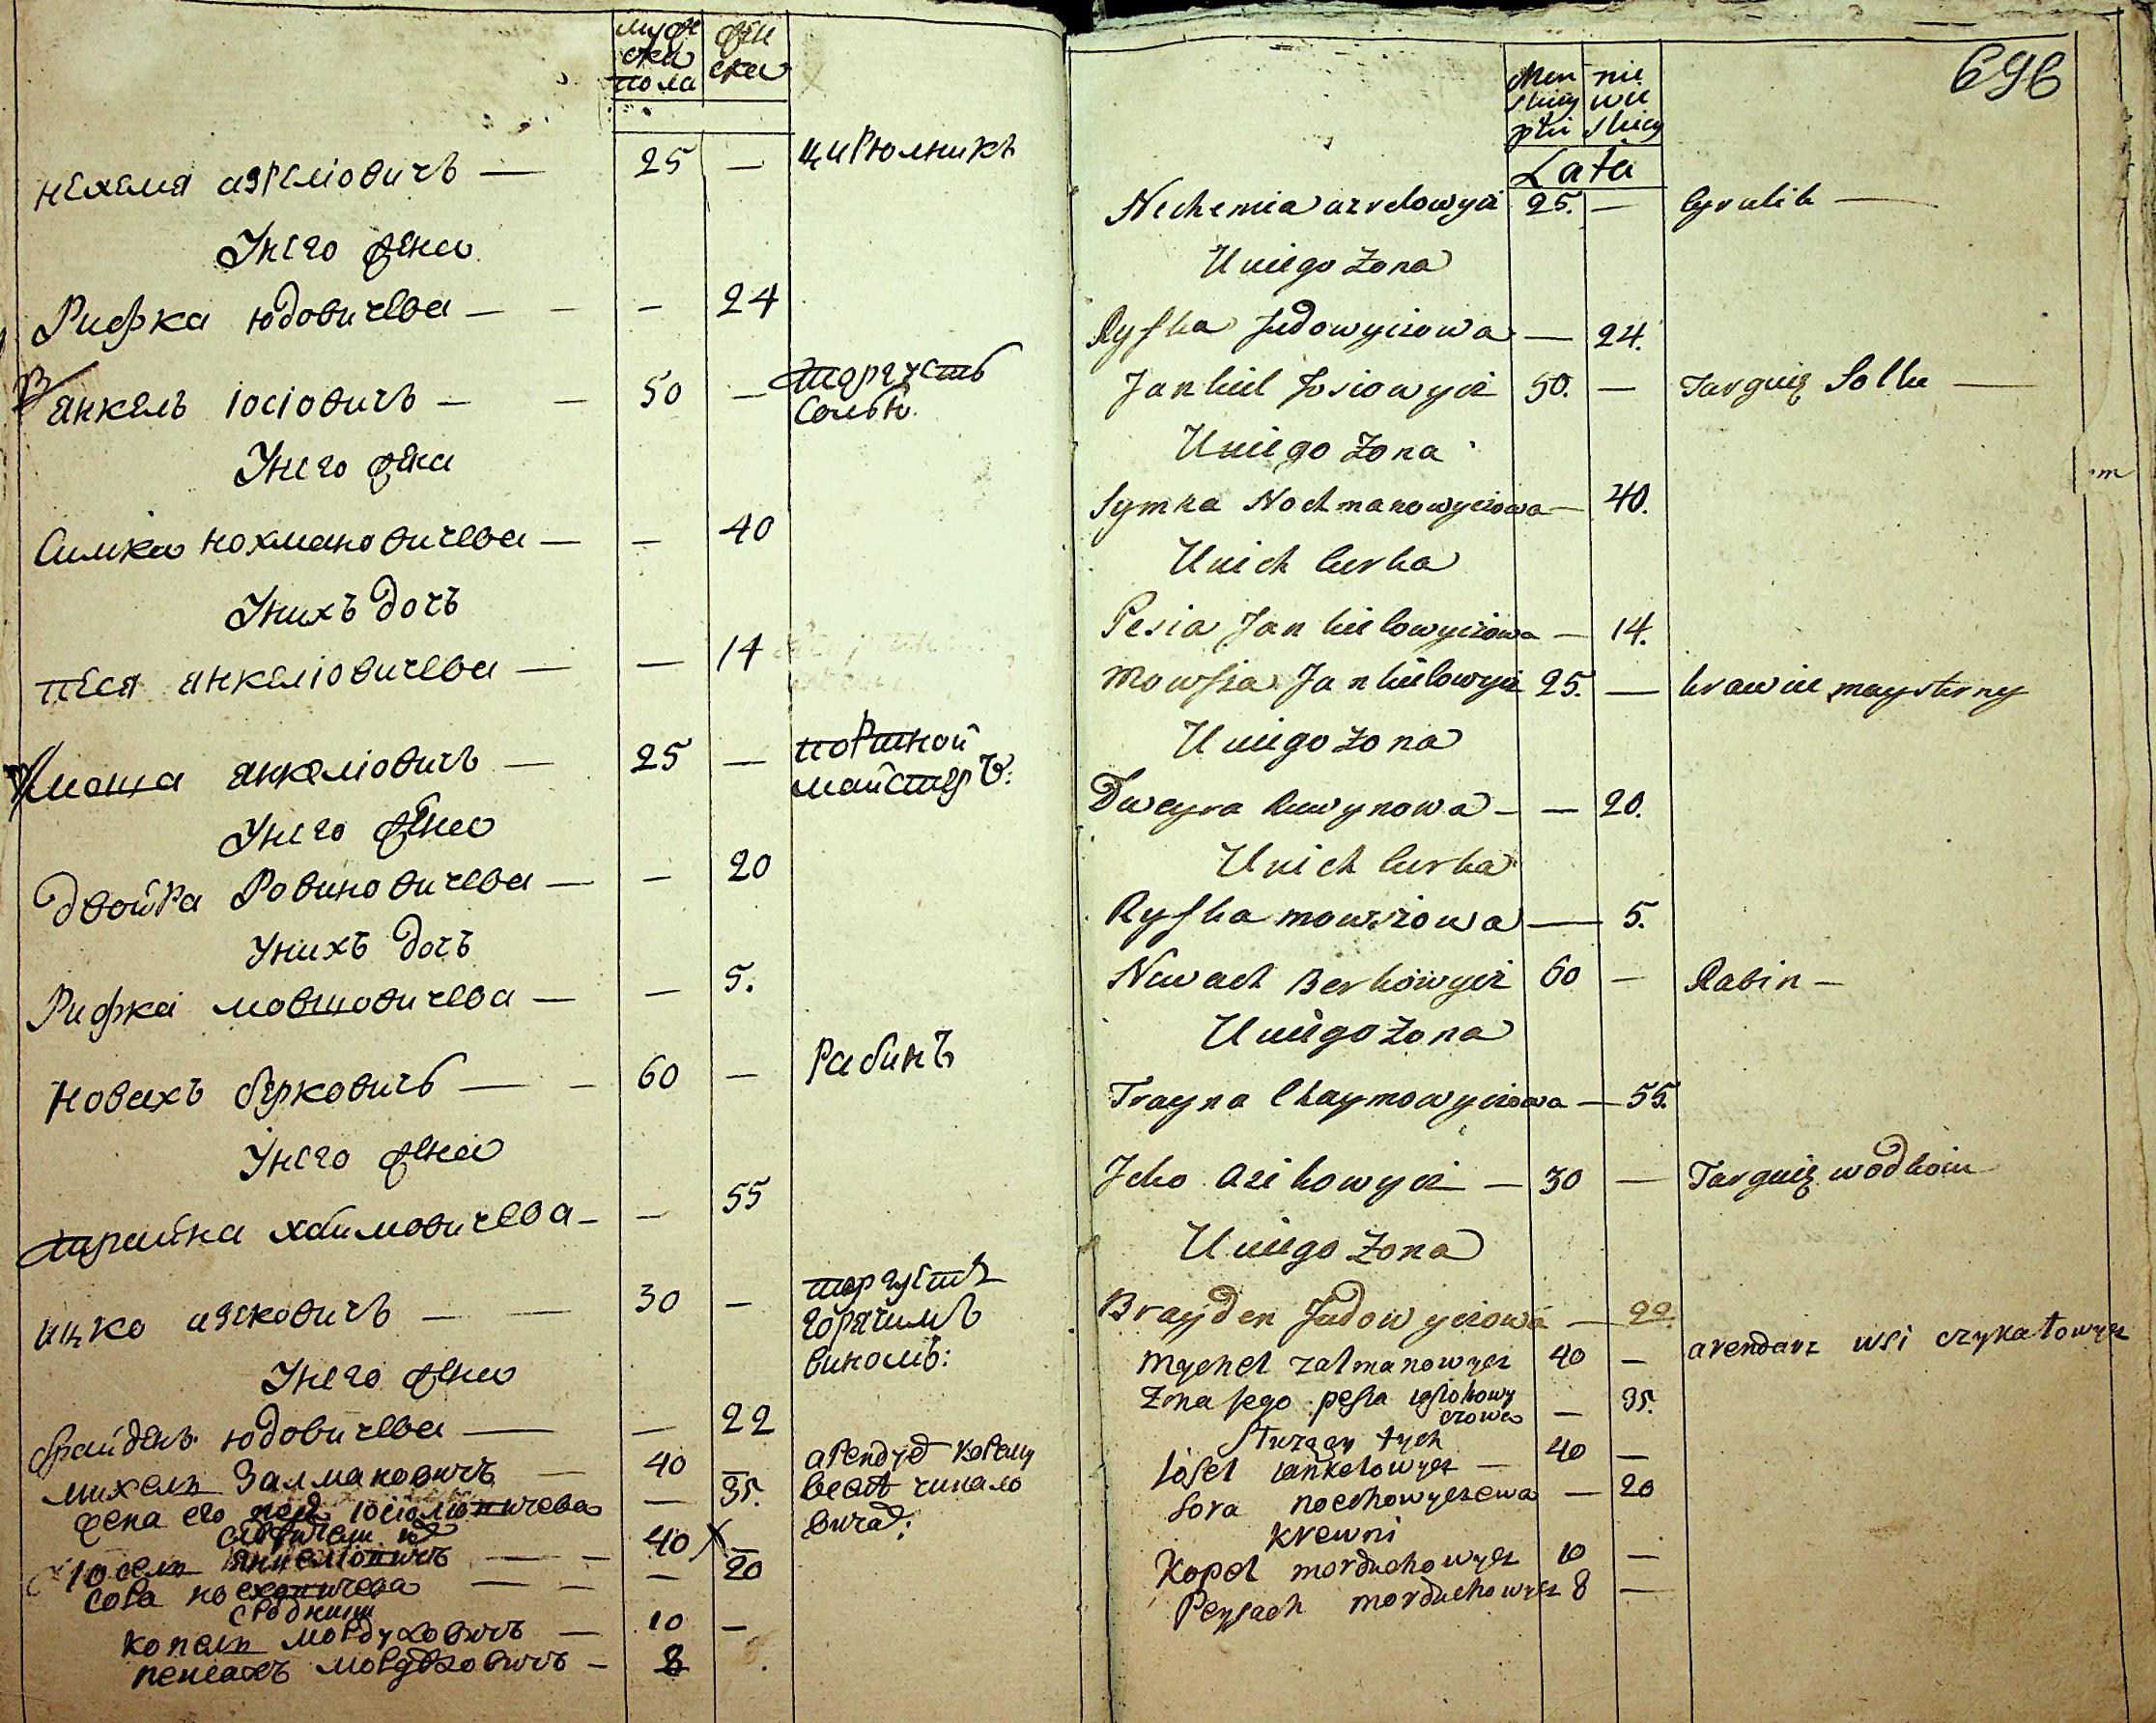 мужеска пола женска
нехемя азрелiовичъ — 25 — цирюлникъ
У него жена
Рифка юдовичева — — — 24
янкель iосiовичъ — — 50 — торгуетъ солью
У него жена
Симка нохмановичева — — 40
У нихъ дочъ
песя янкелiовичева — — 14
мовша янкелiовичъ — 25 — портной майстеръ:
У него жена
двойра Ровиновичева — — 20
У нихъ дочъ
Рифка мовшовичева — — 5.
новахъ берковичъ — — 60 — Рабинъ
У него жена
трайна хаимовичева — — 55
ицко азиковичъ — — 30 — торгуетъ горячимъ виномъ:
У него жена
брайденъ юдовичева — — 22
михель Залмановичъ — 40 —
жена его — 35.
40 —
сора ноеховичева — — — 20
сродники
копель мордуховичъ — 10 —
мордуховичъ — 8
696
Men skiey płci nie wie skiey
Lata
Nechemia azrelowycz 25. — Cyrulik —
U niego Zona
Ryfka Judowyczowa — 24.
Jankiel Josiowycz 50. — Targuię Solku —
U niego Zona
Symka Nochmanowyczowa — 40.
U nich Curka
Pesia Jankielowyczowa — 14.
Mowsza Jankielowycz 25. — krawiec maysterny
U niego Zona
Dweyra Ruwynowa — — 20.
U nich Curka
Ryfka mowszowa — 5.
Newach Berkowycz 60 — Rabin —
U niego Zona
Trayna Chaymowyczowa — 55.
Jcko azikowycz — 30 — Targuię wodkoiu
U niego Zona
Brayden Judowyczowa — 22.
Mychel zalmanowycz 40 — arendarz wsi czykałowycz
Zona jego pesia — 35.
Słuzący tych
Josel iankelowycz — 40 —
Sora noechowyczewa — 20
Krewni
Kopel morduchowycz 10 —
Peysach morduchowycz 8 —